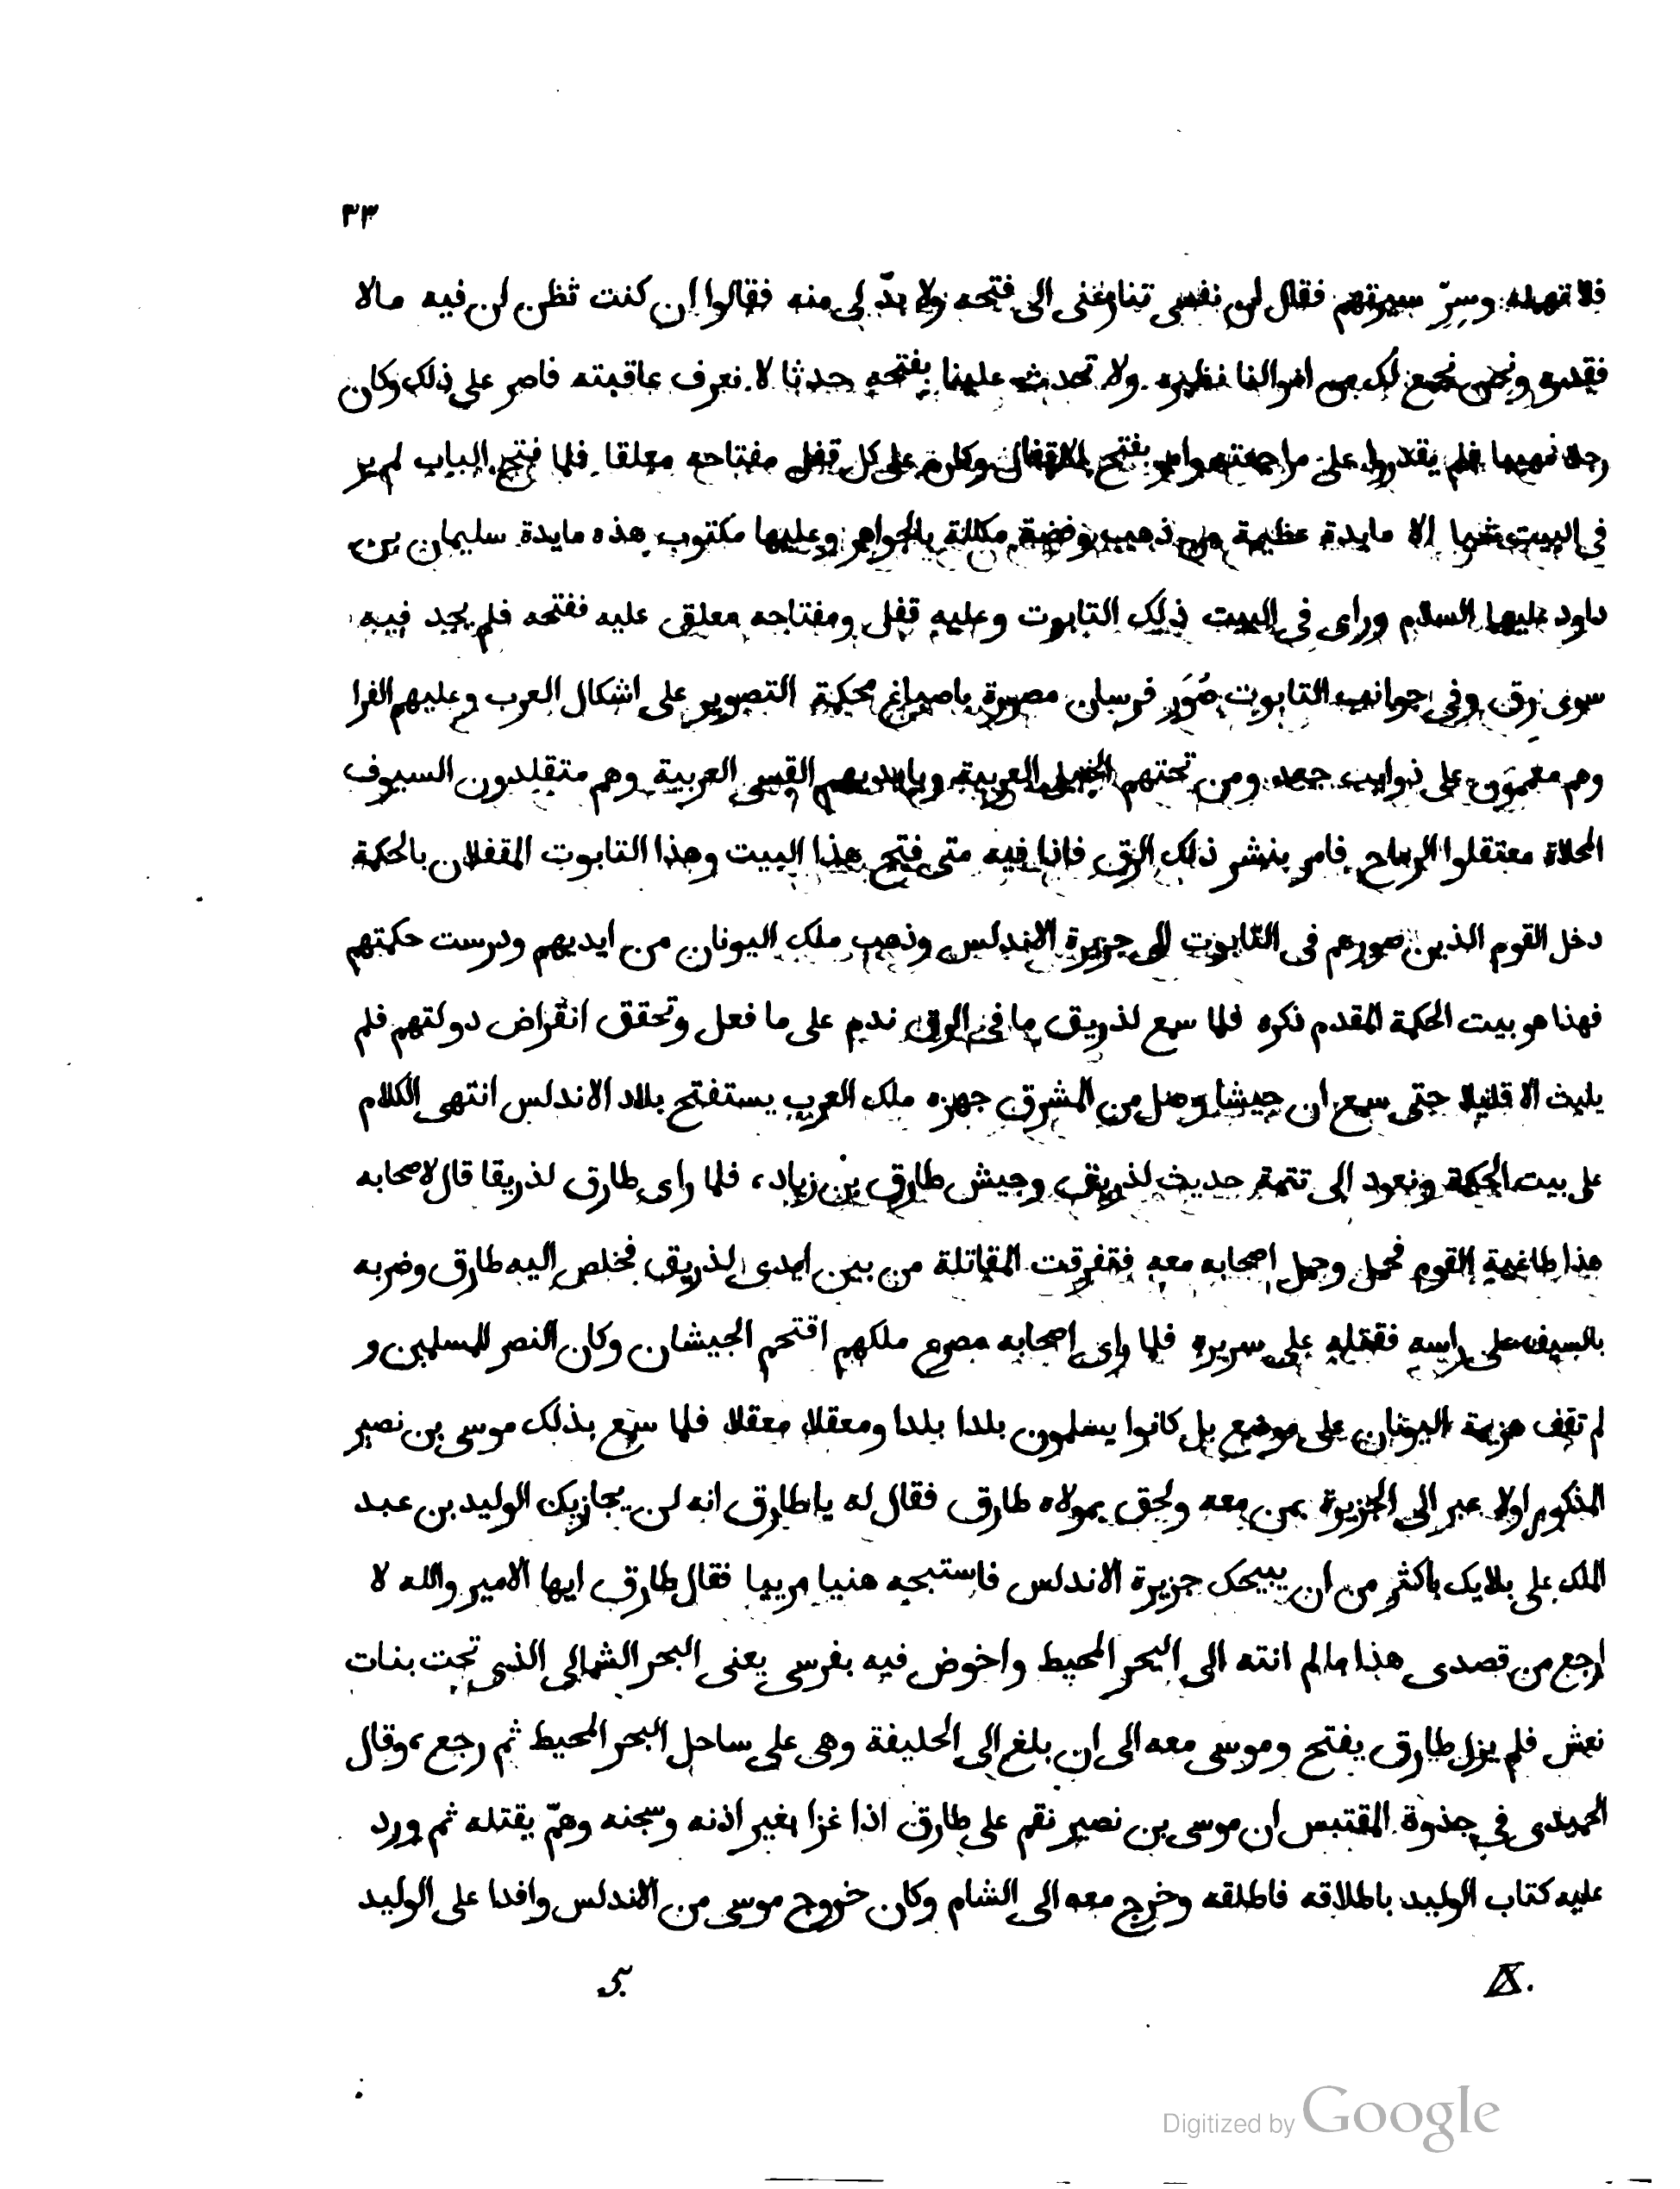 ٣٣
فلا تهمله وسِرّ سيرتهم فقال ان نفسى تنازعنى الى فتحه ولا بدّ لى منه فقالوا ان كنت تظن ان فيه مالا
فقدره ونحن نجمع لك من اموالنا نظيره ولا تحدث علينا بفتحه حدثا لا نعرف عاقبته فاصر على ذلك وكان
رجلا مهيبا فلم يقدروا على مراجعته وامر بفتح الاقفال وكان على كل قفل مفتاحه معلقا فلما فتح الباب لم ير
فى البيت شيا الا مايدة عظيمة من ذهب وفضة مكللة بالجواهر وعليها مكتوب هذه مايدة سليمان بن
داود عليهما السلام وراى فى البيت ذلك التابوت وعليه قفل ومفتاحه معلق عليه ففتحه فلم يجد فيه
سوى رق وفى جوانب التابوت صُوَر فرسان مصورة باصباغ محكمة التصوير على اشكال العرب وعليهم الفرا
وهم معممون على ذوايب جعد ومن تحتهم الخيل العربية وبايديهم القسى العربية وهم متقلدون السيوف
المحلاة معتقلوا الرماح فامر بنشر ذلك الرق فاذا فيه متى فتح هذا البيت وهذا التابوت المقفلان بالحكمة
دخل القوم الذين صورهم فى التابوت الى جزيرة الاندلس وذهب ملك اليونان من ايديهم ودرست حكمتهم
فهذا هو بيت الحكمة المقدم ذكره فلما سمع لذريق ما فى الرق ندم على ما فعل وتحقق انقراض دولتهم فلم
يلبث الا قليلا حتى سمع ان جيشا وصل من المشرق جهزه ملك العرب يستفتح بلاد الاندلس انتهى الكلام
على بيت الحكمة ونعود الى تتمة حديث لذريق وجيش طارق بن زياد، فلما راى طارق لذريقا قال لاصحابه
هذا طاغية القوم فحمل وحمل اصحابه معه فتفرقت المقاتلة من بين ايدى لذريق فخلص اليه طارق وضربه
بالسيف على راسه فقتله على سريره فلما راى اصحابه مصرع ملكهم اقتحم الجيشان وكان النصر للمسلمين و
لم تقف هزيمة اليونان على موضع بل كانوا يسلمون بلدا بلدا ومعقلا معقلا فلما سمع بذلك موسى بن نصير
المذكور اولا عبر الى الجزيرة بمن معه ولحق بمولاه طارق فقال له يا طارق انه لن يجازيك الوليد بن عبد
الملك على بلايك باكثر من ان يبيحك جزيرة الاندلس فاستبحه هنيا مرييا فقال طارق ايها الامير والله لا
ارجع من قصدى هذا ما لم انته الى البحر المحيط واخوض فيه بفرسى يعنى البحر الشمالى الذى تحت بنات
نعش فلم يزل طارق يفتح وموسى معه الى ان بلغ الى الحليفة وهى على ساحل البحر المحيط ثم رجع، وقال
الحميدى فى جذوة المقتبس ان موسى بن نصير نقم على طارق اذا غزا بغير اذنه وسجنه وهمّ بقتله ثم ورد
عليه كتاب الوليد باطلاقه فاطلقه وخرج معه الى الشام وكان خروج موسى من الاندلس وافدا على الوليد
IX. 5.
Digitized by Google